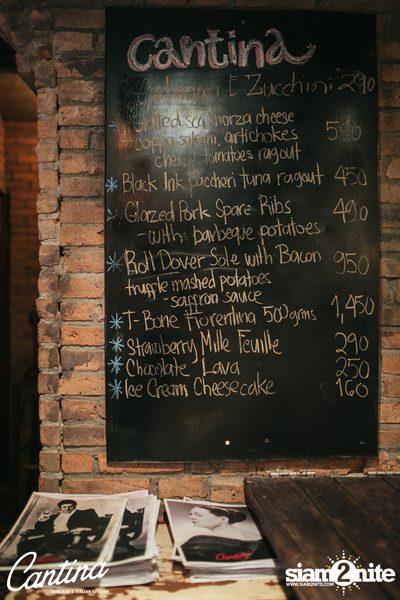 cantina
E Zucchini 290
Grilled scamorza cheese
coppa salami, artichokes 590
cherry tomatoes ragout
* Black Ink paccheri tuna ragout 450
* Glazed Pork Spare Ribs 490
- with barbeque potatoes
* Roll Dover Sole with Bacon 950
truffle mashed potatoes
- saffron sauce
* T-Bone Fiorentina 500grms 1,450
* Strawberry Mille Feuille 290
* Chocolate Lava 250
* Ice Cream Cheesecake 160
Cantina
Cantina
WINE BAR & ITALIAN KITCHEN
siam2nite
WWW.SIAM2NITE.COM